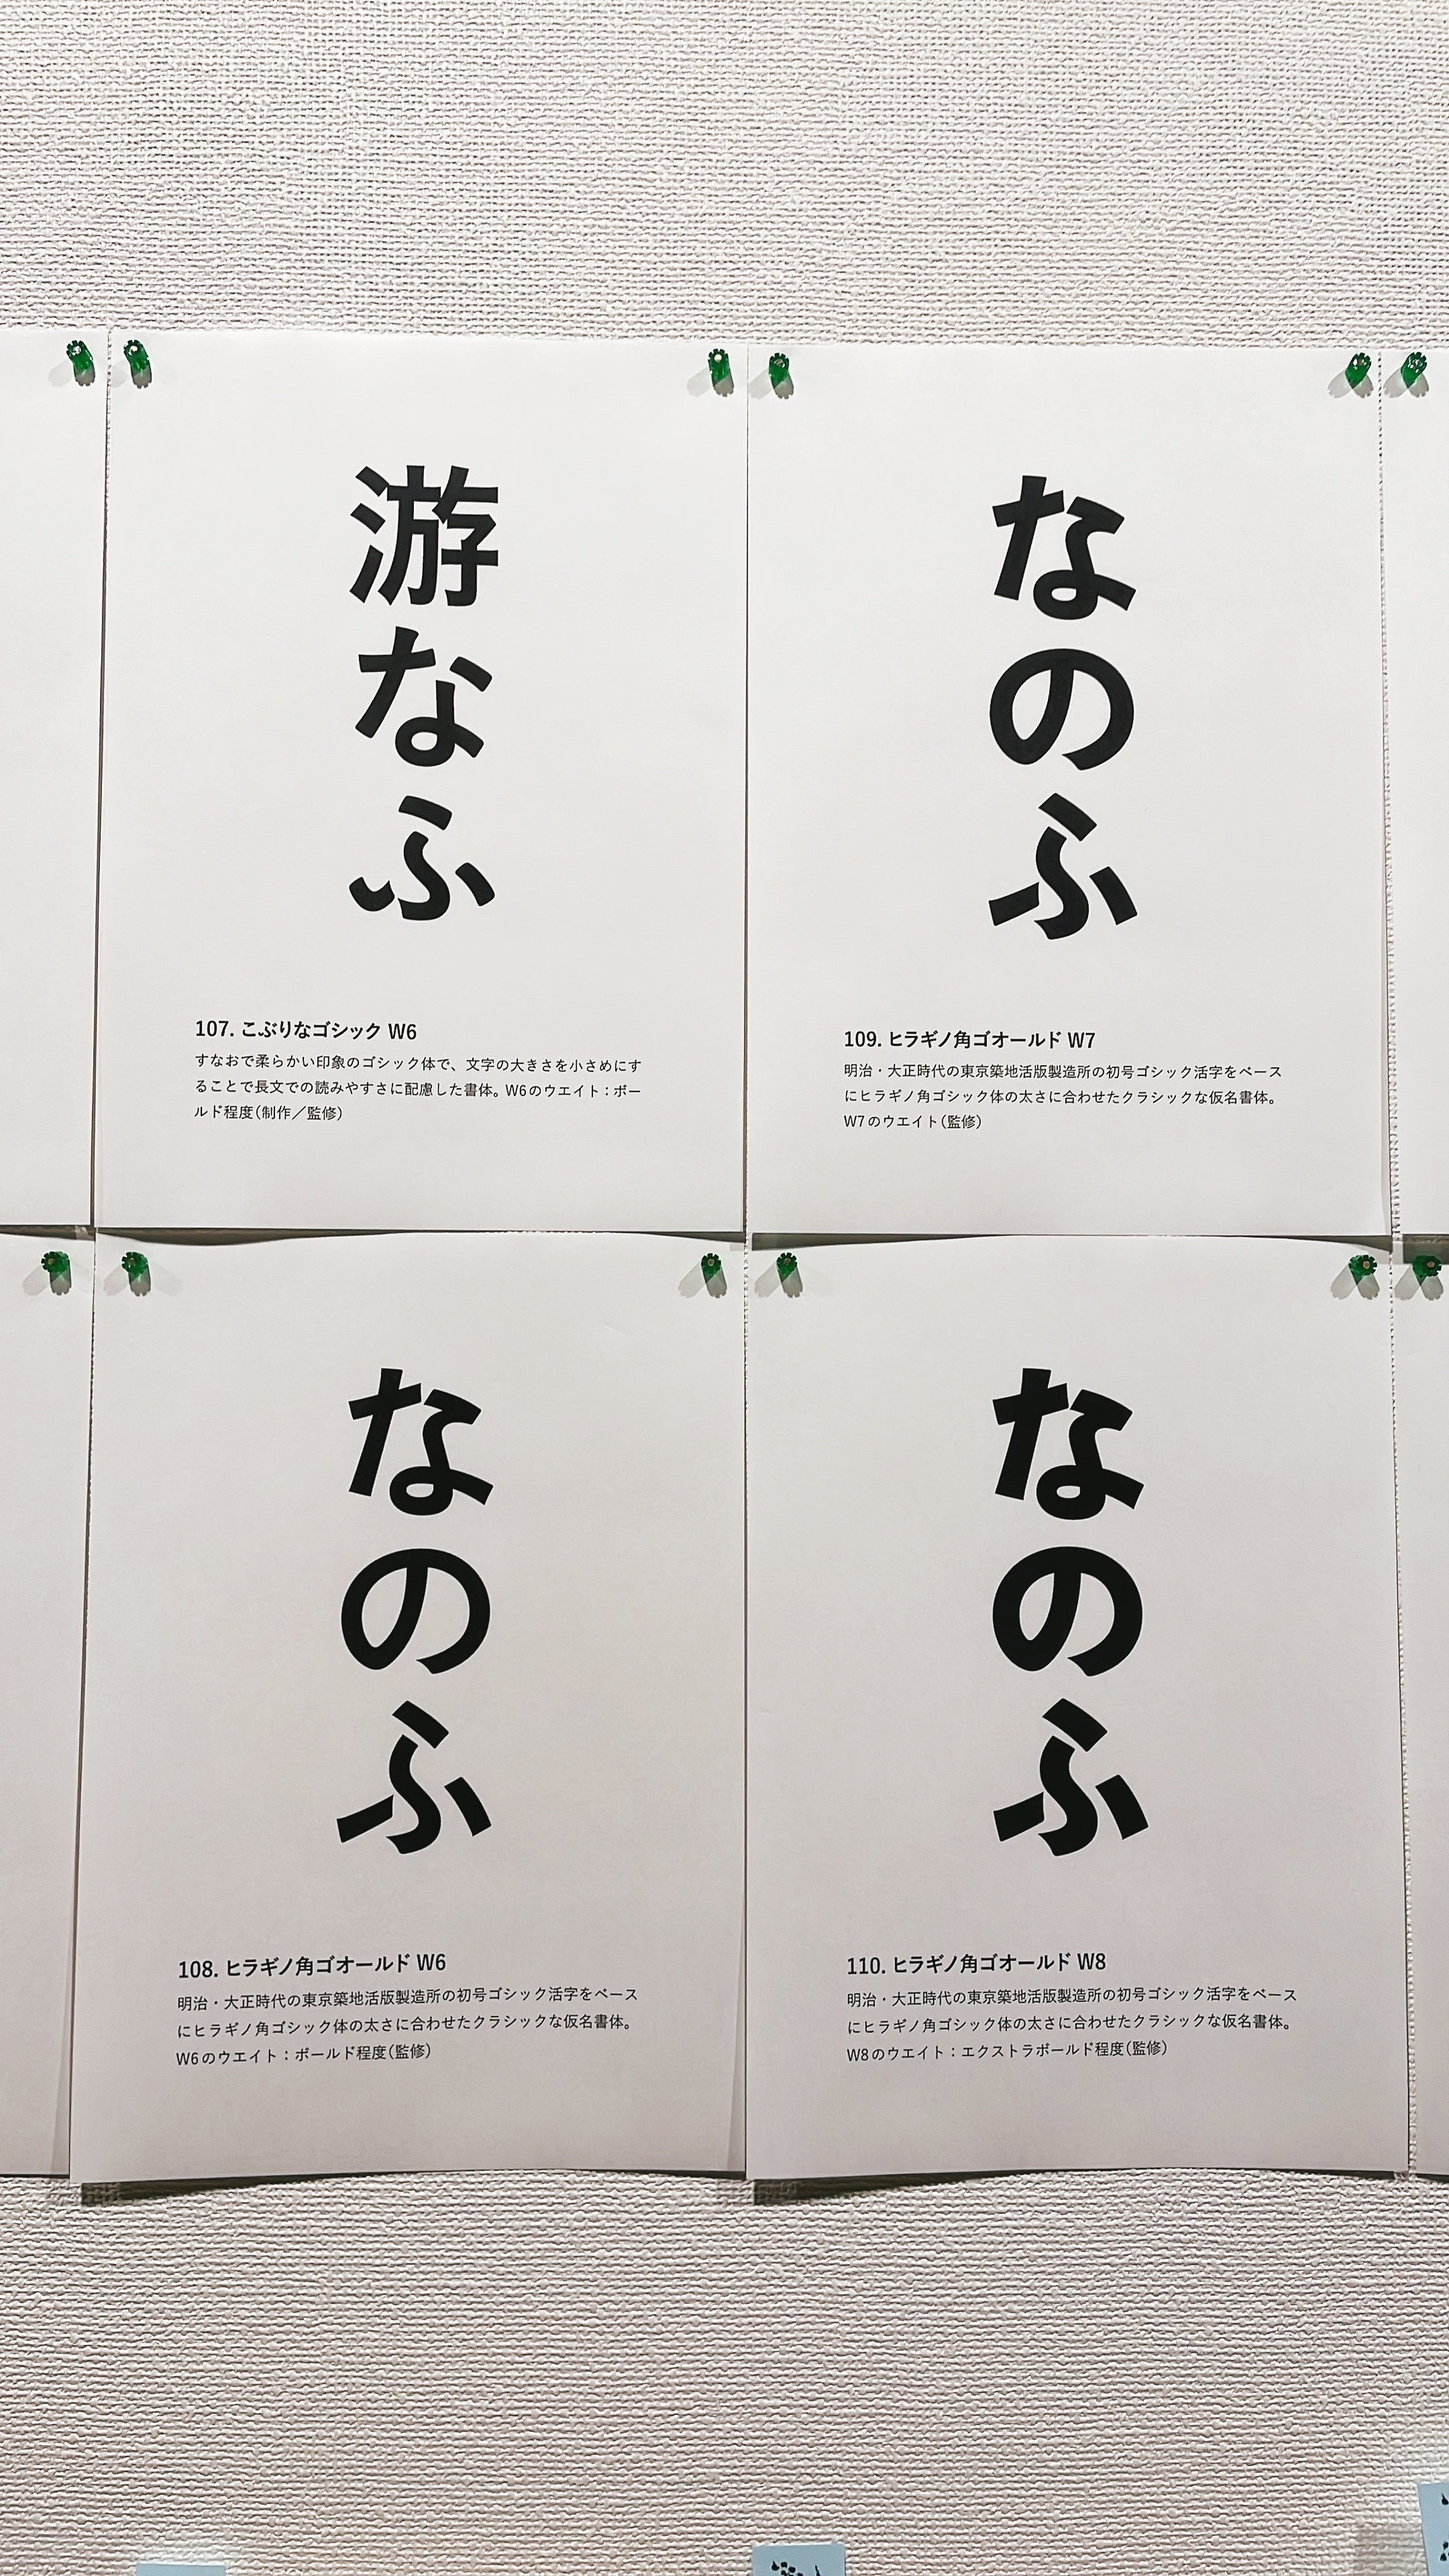 游
な
ふ
107. こぶりなゴシック W6
すなおで柔らかい印象のゴシック体で、文字の大きさを小さめにす
ることで長文での読みやすさに配慮した書体。W6のウエイト：ボー
ルド程度（制作／監修）
な
の
ふ
108. ヒラギノ角ゴオールド W6
明治・大正時代の東京築地活版製造所の初号ゴシック活字をベース
にヒラギノ角ゴシック体の太さに合わせたクラシックな仮名書体。
W6のウエイト：ボールド程度（監修）
な
の
ふ
109. ヒラギノ角ゴオールド W7
明治・大正時代の東京築地活版製造所の初号ゴシック活字をベース
にヒラギノ角ゴシック体の太さに合わせたクラシックな仮名書体。
W7のウエイト（監修）
な
の
ふ
110. ヒラギノ角ゴオールド W8
明治・大正時代の東京築地活版製造所の初号ゴシック活字をベース
にヒラギノ角ゴシック体の太さに合わせたクラシックな仮名書体。
W8のウエイト：エクストラボールド程度（監修）